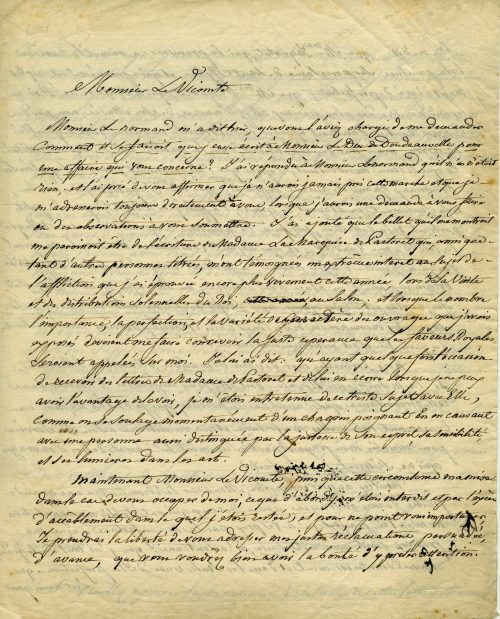 Monsieur Le Vicomte
Monsieur Lenormand m'a dit hier, que vous l'aviez chargé de me demander
Comment il se faisoit que j'eusse écrit à Monsieur Le Duc de Doudeauville pour
une affaire qui vous concerne? J'ai répondu à Monsieur Lenormand qu'il n'en étoit
rien, et l'ai prié de vous affirmer que je n'aurois jamais pris cette marche et que je
m'adresserois toujours directement à vous, lorsque j'aurois une demande à vous faire
ou des observations à vous soumettre. J'ai ajouté que le billet qu'il me montroit
me paroissoit être de l'écriture de Madame La Marquise de Pastoret qui, ainsi que
tant d'autres personnes titrées, m'ont témoigné un extrême interet au sujet de
l'affliction que j'ai éprouvée encore plus vivement cette année, lors de la Visite
et des distributions solennelles du Roi, au Salon. et lorsque le nombre
l'importance, la perfection, et la variété de caractère des ouvrages que j'avois
exposé devoient me faire concevoir la juste espérance que les faveurs Royales
seroient appelées sur moi. J'ai dit: qu'ayant quelque fois l'occasion
de recevoir des lettres de Madame de Pastoret et de lui en écrire lorsque je ne peux
avoir l'avantage de la voir, je m'étois entretenu de ce triste sujet avec Elle,
comme on se soulage momentanément d'un chagrin poignant en en causant
avec une personne aussi distinguée par la justesse de son esprit, sa sensibilité
et ses lumières dans les arts.
Maintenant Monsieur Le Vicomte, puis que cette circonstance m'a mis
dans le cas de vous occuper de moi, ce que d'abord je m'étois interdit et par l'excès
d'accablement dans le quel j'étois resté, et pour ne point vous importuner
Je prendrai la liberté de vous adresser mes justes réclamations, persuadé
d'avance, que vous voudrez bien avoir la bonté d'y prêter attention.